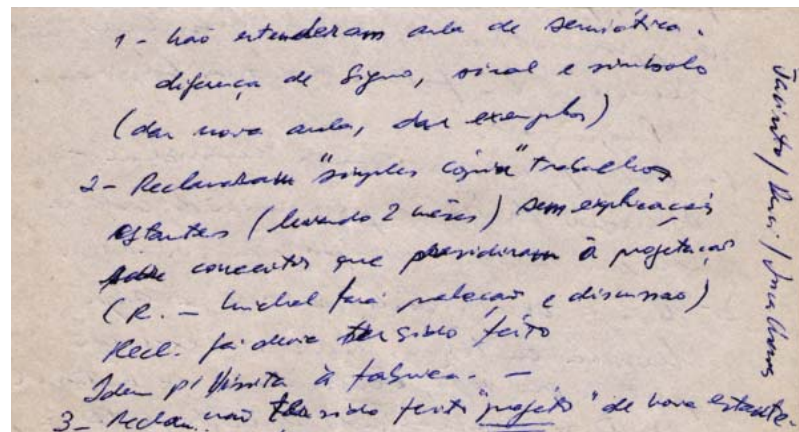 1 - Não entenderam aula de semiótica.
diferença de Signo, sinal e símbolo
(dar nova aula, dar exemplos)
2 - Reclamaram "simples cópia" trabalhos
estantes (levando 2 mêses) sem explicação
conceitos que presidiram à projetação
(R. - Michel fará preleção e discussão)
Recl. já devia ter sido feito
Idem p/ Visita à fábrica. -
3 - Reclam não ter sido feito "projeto" de nova estante
Jacinto /